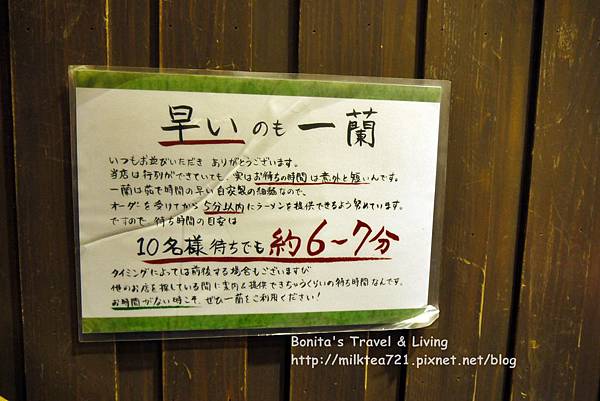 早いのも一蘭
いつもお並びいただき ありがとうございます。
当店は行列ができていても、実はお待ちの時間は意外と短いんです。
一蘭は茹で時間の早い自家製の細麺なので、
オーダーを受けてから5分以内にラーメンを提供できるよう努めています。
ですので 待ち時間の目安は
10名様待ちでも 約6〜7分
タイミングによっては前後する場合もございますが
他のお店を探している間に案内&提供できちゃうくらいの待ち時間なんです。
お時間がない時こそ、ぜひ一蘭をご利用ください!
Bonita's Travel & Living
http://milktea721.pixnet.net/blog